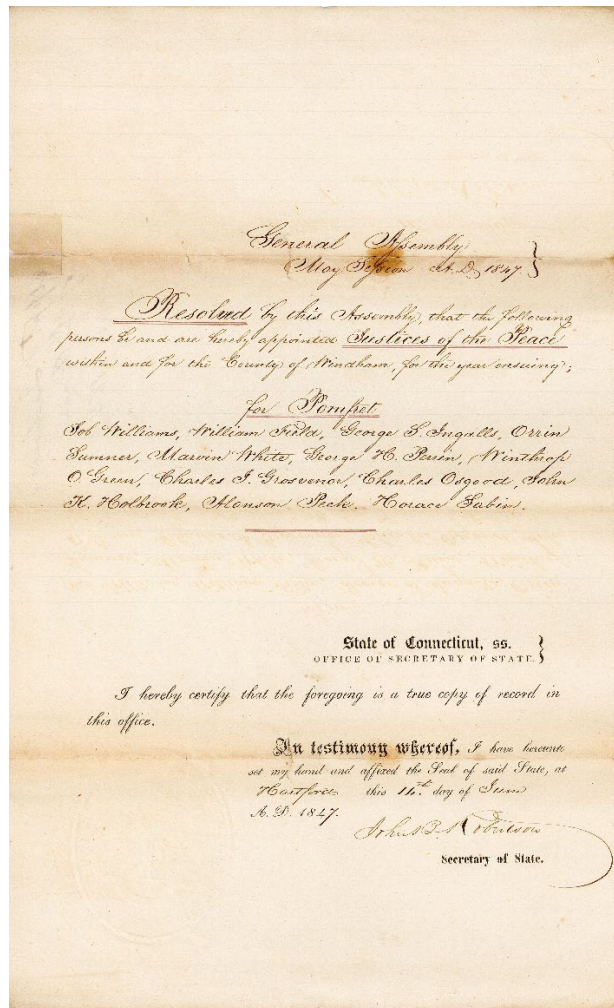 General Assembly
May Session A.D. 1847.
Resolved by this Assembly, that the following
persons be and are hereby appointed Justices of the Peace
within and for the County of Windham, for the year ensuing;
for Pomfret
Job Williams, William Field, George S. Ingalls, Orrin
Sumner, Marvin White, George H. Perrin, Winthrop
O. Green, Charles I. Grosvenor, Charles Osgood, John
K. Holbrook, Alanson Peck. Horace Sabin.
State of Connecticut, ss.
OFFICE OF SECRETARY OF STATE.
I hereby certify that the foregoing is a true copy of record in
this office.
In testimony whereof, I have hereunto
set my hand and affixed the Seal of said State, at
Hartford this 14th. day of June
A. D. 1847.
John B. Robertson
Secretary of State.